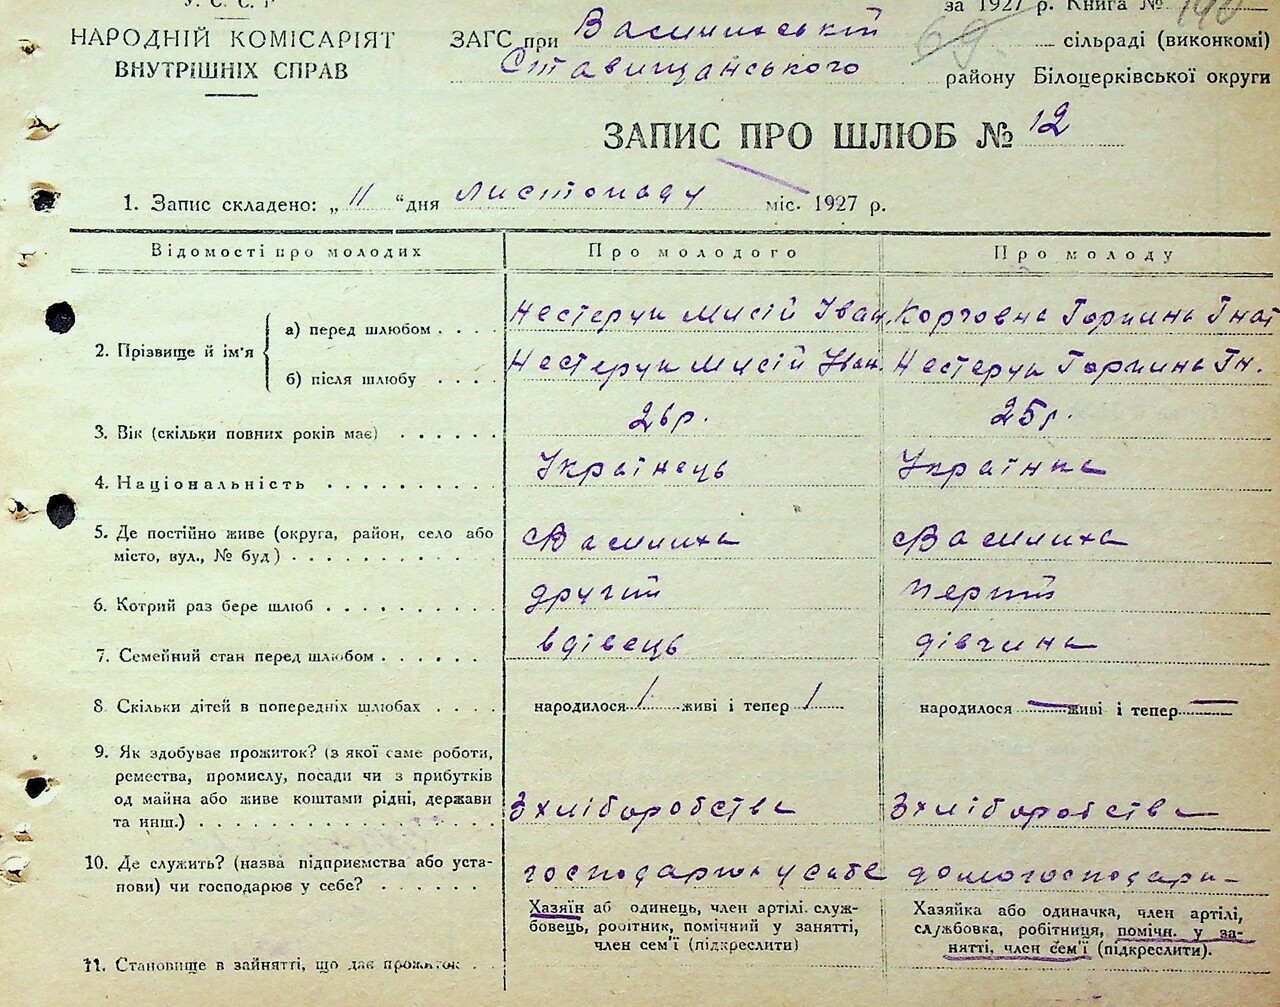 У. С. С. Р
за 1927 р. Книга № 190
НАРОДНІЙ КОМІСАРІЯТ
ВНУТРІШНІХ СПРАВ
ЗАГС при Василиській 69 сільраді (виконкомі)
Ставищанського району Білоцерківської округи
ЗАПИС ПРО ШЛЮБ № 12
1. Запис складено: „11“ дня листопаду міс. 1927 р.
Відомості про молодих Про молодого Про молоду
2. Прізвище й ім'я
а) перед шлюбом . . . . Нестерук Мисій Іван. Корчовна Горпина Гнат
б) після шлюбу . . . . Нестерук Мисій Іван. Нестерук Горпина Гн.
3. Вік (скільки повних років має) . . . . . . 26р. 25р.
4. Національність . . . . . . . . . Українець Українка
5. Де постійно живе (округа, район, село або
місто, вул., № буд) . . . . . . . . . . . с Василиха с Василиха
6. Котрий раз бере шлюб . . . . . . . . . другий перший
7. Семейний стан перед шлюбом . . . . . . вдівець дівчина
8 Скільки дітей в попередніх шлюбах . . . . народилося 1 живі і тепер 1 народилося — живі і тепер —
9. Як здобуває прожиток? (з якої саме роботи,
ремества, промислу, посади чи з прибутків
од майна або живе коштами рідні, держави
та инш.) . . . . . . . . . . . . . . . . З хліборобства З хліборобства
10. Де служить? (назва підприємства або уста-
нови) чи господарює у себе? . . . . . . господарює у себе домогосподарк-
11. Становище в зайнятті, що дає прожиток . .
Хазяїн аб одинець, член артілі. служ-
бовець, робітник, помічний у занятті,
член сем'ї (підкреслити)
Хазяйка або одиначка, член артілі,
службовка, робітниця, помічн. у за-
нятті, член сем'ї (підкреслити).